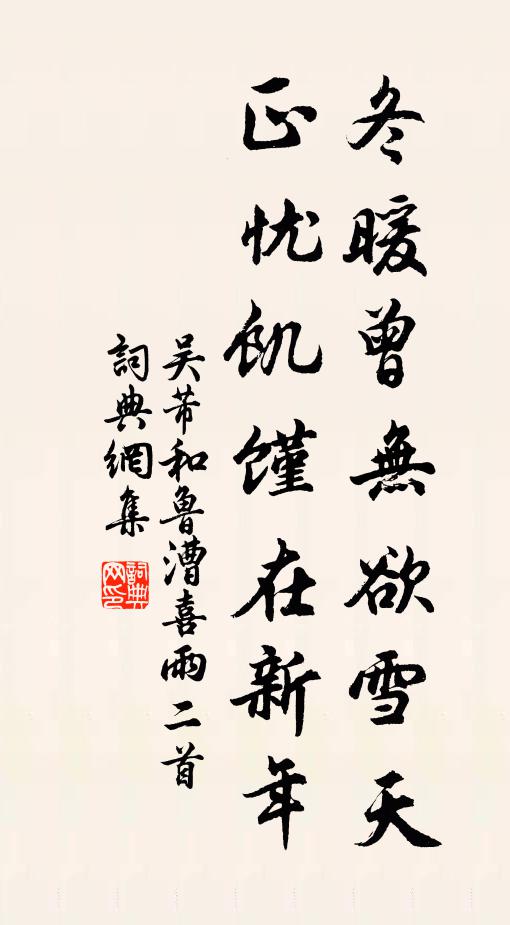 冬暖曾無欲雪天
正忧飢饉在新年
吴芾和魯漕喜雨二首
詞典網集
詞典网印